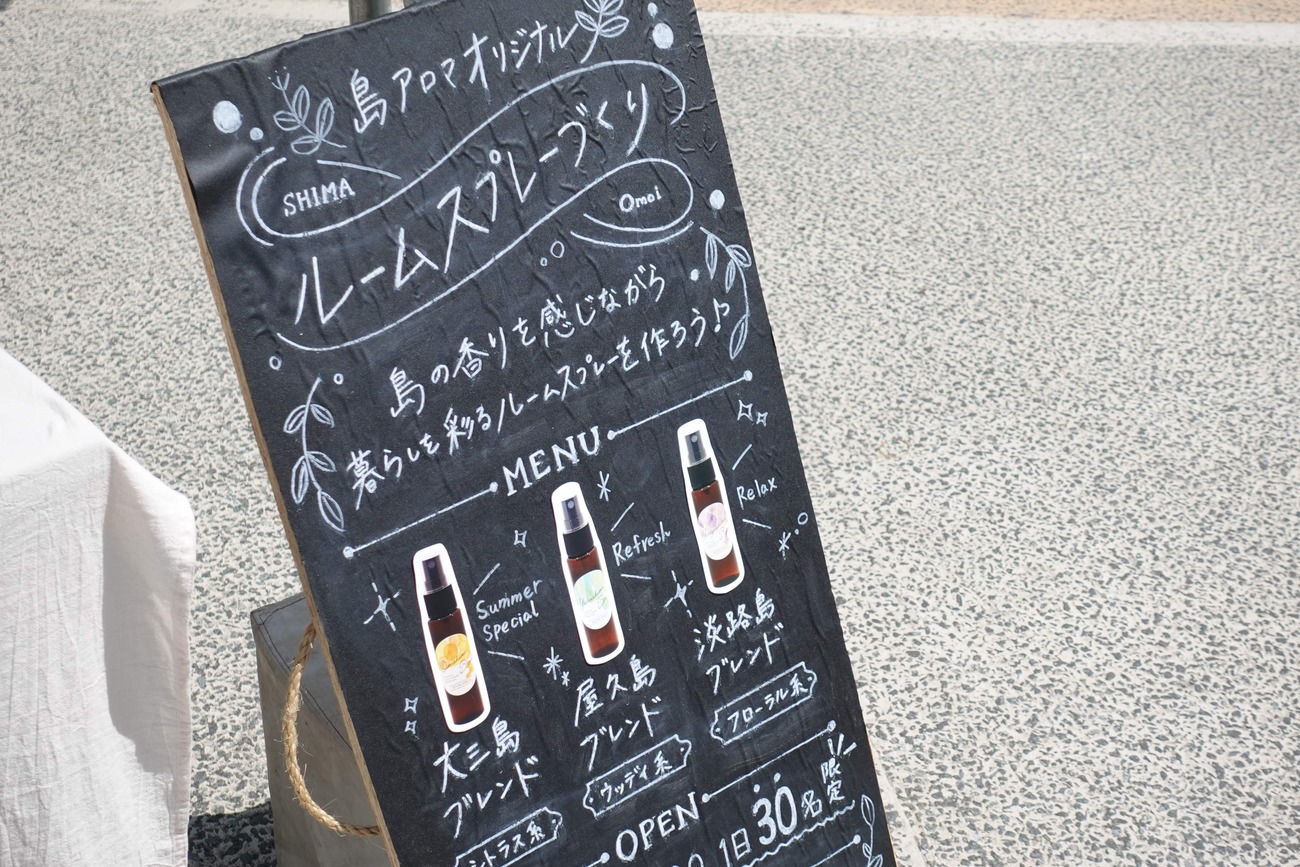 島アロマオリジナル
SHIMA
ルームスプレーづくり
Omoi
島の香りを感じながら
暮らしを彩るルームスプレーを作ろう♪
MENU
Summer
Special
大三島
ブレンド
シトラス系
Refresh
屋久島
ブレンド
ウッディ系
Relax
淡路島
ブレンド
フローラル系
OPEN
1日30名
限定